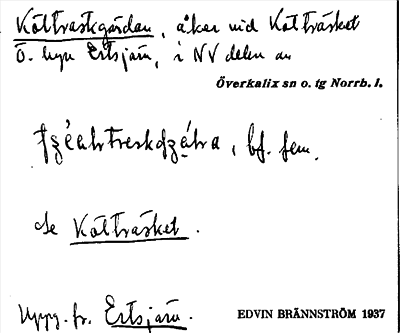 Kattraskgärdan, åker vid Katträsket
ö. byn Ertsjärv, i NV delen av
Överkalix sn o. tg Norrb. l.
bf. fem.
se Katträsket.
Uppg. fr. Ertsjärv.
EDVIN BRÄNNSTRÖM 1937